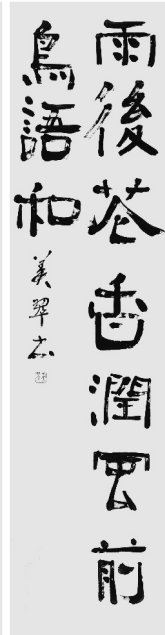 雨後花香潤風前
鳥語和
美翠